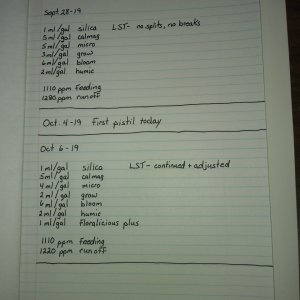 Sept 28-19
1 ml/gal silica LST - no splits, no breaks
5 ml/gal calmag
5 ml/gal micro
3 ml/gal grow
6 ml/gal bloom
2 ml/gal humic
1110 ppm feeding
1280 ppm runoff
Oct. 4-19 first pistil today
Oct 6-19
1 ml/gal silica LST - continued + adjusted
5 ml/gal calmag
4 ml/gal micro
2 ml/gal grow
6 ml/gal bloom
2 ml/gal humic
1 ml/gal floralicious plus
1110 ppm feeding
1220 ppm runoff